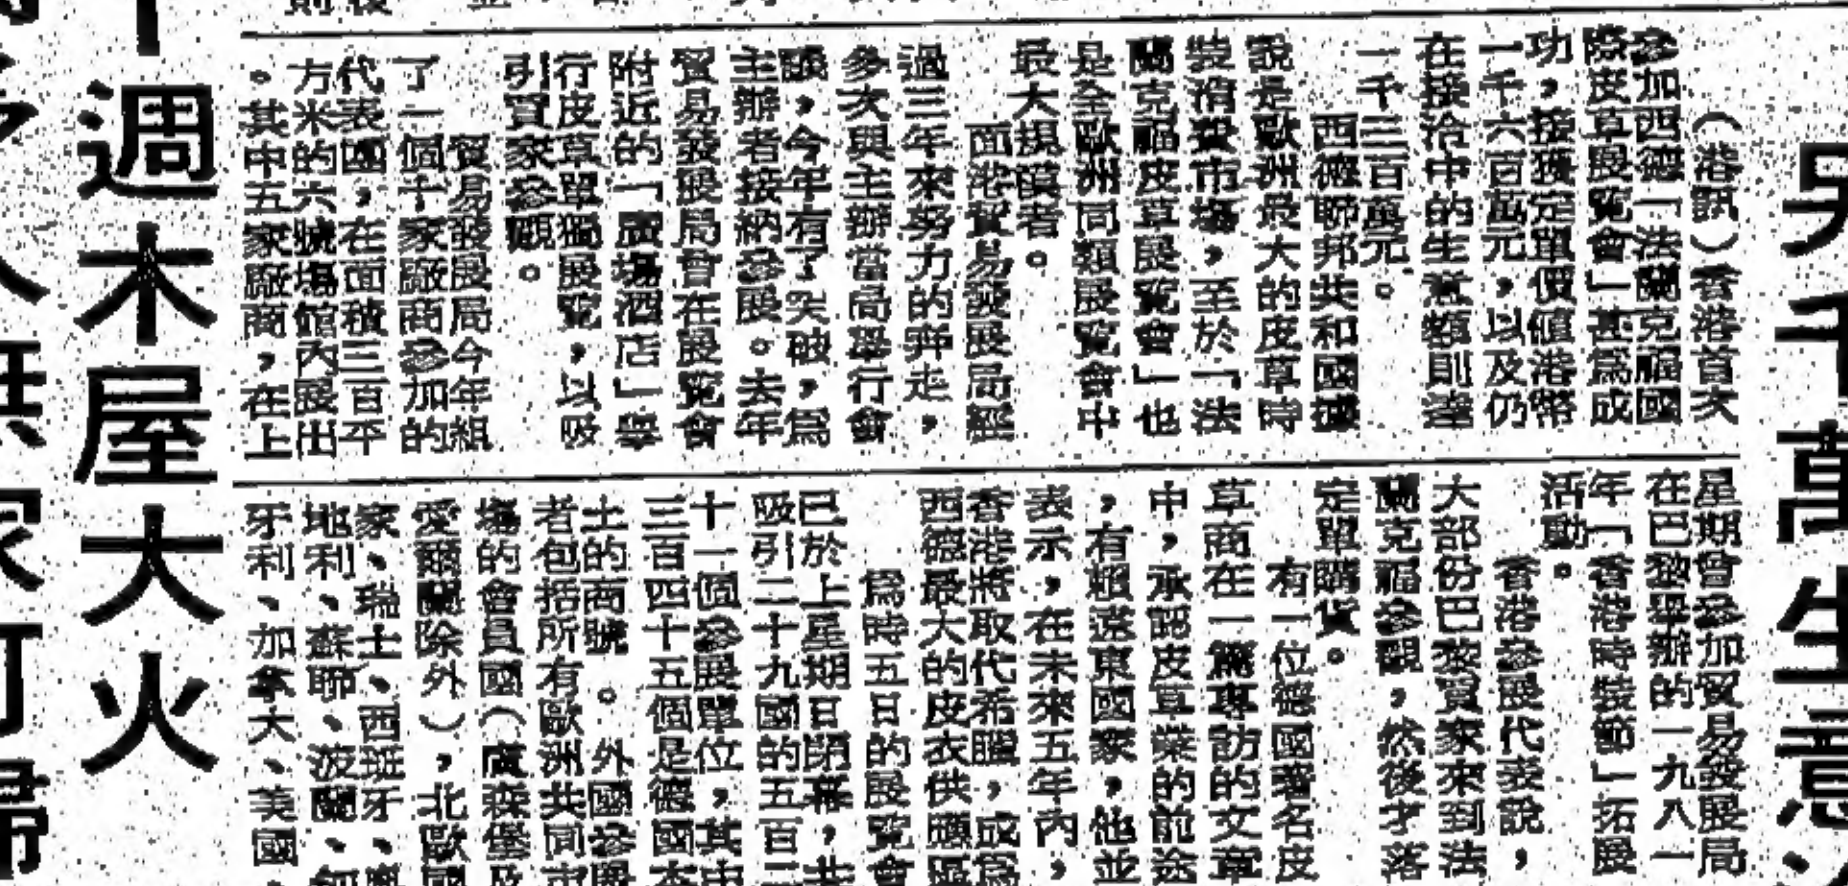 （港訊）香港首次
參加西德「法蘭克福國
際皮草展覽會」甚為成
功，接獲定單價值港幣
一千六百萬元，以及仍
在接洽中的生意額則達
一千三百萬元。
西德聯邦共和國據
說是歐洲最大的皮草時
裝消費市場，至於「法
蘭克福皮草展覽會」也
是全歐洲同類展覽會中
最大規模者。
而港貿易發展局經
過三年來努力的奔走，
多次與主辦當局舉行會
議，今年有了突破，為
主辦者接納參展。去年
貿易發展局曾在展覽會
附近的「廣場酒店」舉
行皮草單獨展覽，以吸
引買家參觀。
貿易發展局今年組
了一個十家廠商參加的
代表團，在面積三百平
方米的六號場館內展出
。其中五家廠商，在上
星期曾參加貿易發展局
在巴黎舉辦的一九八一
年「香港時裝節」拓展
活動。
香港參展代表說，
大部份巴黎買家來到法
蘭克福參觀，然後才落
定單購貨。
有一位德國著名皮
草商在一篇專訪的文章
中，承認皮草業的前途
，有賴遠東國家，他並
表示，在未來五年內，
香港將取代希臘，成為
西德最大的皮衣供應區
為時五日的展覽會
已於上星期日閉幕，共
吸引二十九國的五百二
十一個參展單位，其中
三百四十五個是德國本
土的商號。外國參展
者包括所有歐洲共同市
場的會員國（盧森堡及
愛爾蘭除外），北歐國
家、瑞士、西班牙、奧
地利、蘇聯、波蘭、匈
牙利、加拿大、美國、
千萬生意
週木屋大火